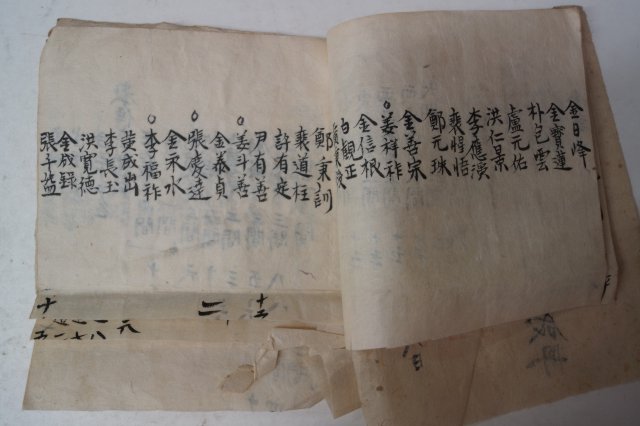 金日峰
金寶蓮
朴包雲
盧元佑
洪仁景
李應漢
裵惺悟
鄭元珠
金吾宗
姜祥祚
金信叔
白觀正
鄭秉訓
裵道柱
許有定
尹有善
姜斗善
金泰貞
張慶達
金永水
李福祚
黃成出
李長玉
洪寬德
金成錄
張斗益
十二
二
十